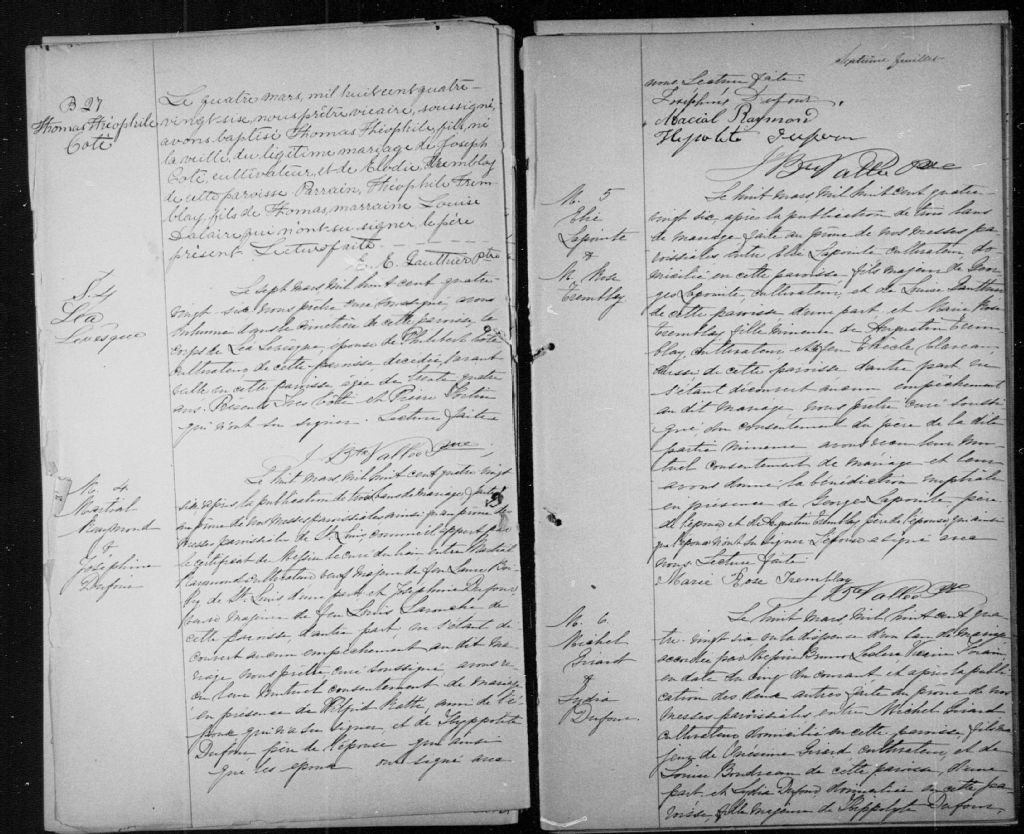 B 27
Thomas Théophile
Coté
Le quatre mars, mil huit cent quatre-
vingt-six, nous prêtre vicaire, soussigné,
avons baptisé Thomas Théophile, fils, né
la veille, du légitime mariage de Joseph
Coté, cultivateur, et de Elodie Tremblay
de cette paroisse. Parrain, Théophile Trem-
blay, fils de Thomas, marraine Louise
Dalaire qui n'ont su signer, le père
présent. Lecture faite
E. E. Gauthier Ptre
S. 4
Léa
Lévesque
Le sept mars mil huit cent quatre
vingt-six nous prêtre curé soussigné avons
inhumé dans le cimetière de cette paroisse le
corps de Léa Lévesque, épouse de Philibert Coté
cultivateur de cette paroisse decedée l'avant
veille en cette paroisse agée de trente quatre
ans. Présents Ives Coté et Pierre Fortin
qui n'ont su signer. Lecture faite
J Bte Vallée Ptre
M. 4
Martial
Raymond
&
Joséphine
Dufour
Le huit mars mil huit cent quatre vingt
six après la publication de trois bans de mariage faite
au prône de nos messes paroissiales ainsi qu'au prône des
messes paroissiales de St. Louis comme il appert par
le certificat de Messire le curé du lieu entre Martial
Raymond cultivateur
de St. Louis d'une part et Joséphine Dufour
majeure de
cette paroisse, d'autre part, ne s'étant dé
couvert aucun empêchement au dit ma
riage, nous prêtre curé soussigné avons re
çu leur mutuel consentement de mariage
en présence de ami de l'é
poux qui n'a su signer, et de Hyppolite
Dufour père de l'épouse qui ainsi
que les époux ont signé avec
Septième feuillet
nous Lecture faite.
Joséphine Dufour,
Macial Raymond
Hypolite Dufour
J Bte Vallée Ptre
M. 5
Elie
Lapointe
&
M. Rose
Tremblay
Le huit mars, mil huit cent quatre
vingt six, après la publication de trois bans
de mariage faite au prône de nos messes pa
roissiales entre Elie Lapointe cultivateur do
micilié en cette paroisse, fils majeur de Geor
ges Lapointe cultivateur, et de Louise Gauthier
de cette paroisse d'une part et Marie Rose
Tremblay fille mineure de Augustin Trem
blay cultivateur, et de feu
aussi de cette paroisse d'autre part ne
s'étant découvert aucun empêchement
au dit mariage nous prêtre curé soussi
gné du consentement du père de la dite
partie mineure avons reçu leur mu
tuel consentement de mariage et leur
avons donné la bénédiction nuptiale
en présence de Georges Lapointe père
de l'époux et de Augustin Tremblay père de l'épouse qui ainsi
que l'époux n'ont su signer. L'épouse a signé avec
nous Lecture faite
Marie Rose Tremblay
J Bte Vallée Ptre
M. 6.
Michel
Girard
&
Lydia
Dufour
Le huit mars mil huit cent qua
tre vingt six vu la dispense d'un ban de mariage
accordée par Messire Bruno Leclerc Vicaire Forain
en date du cinq du courant et après la publi
cation des deux autres faite au prône de nos
messes paroissiales, entre Michel Girard
cultivateur domicilié en cette paroisse, fils ma
jeur de Onésime Girard cultivateur, et de
Louise Boudreau de cette paroisse, d'une
part et Lydia Dufour domiciliée en cette pa
roisse, fille majeure de Hippolyte Dufour,